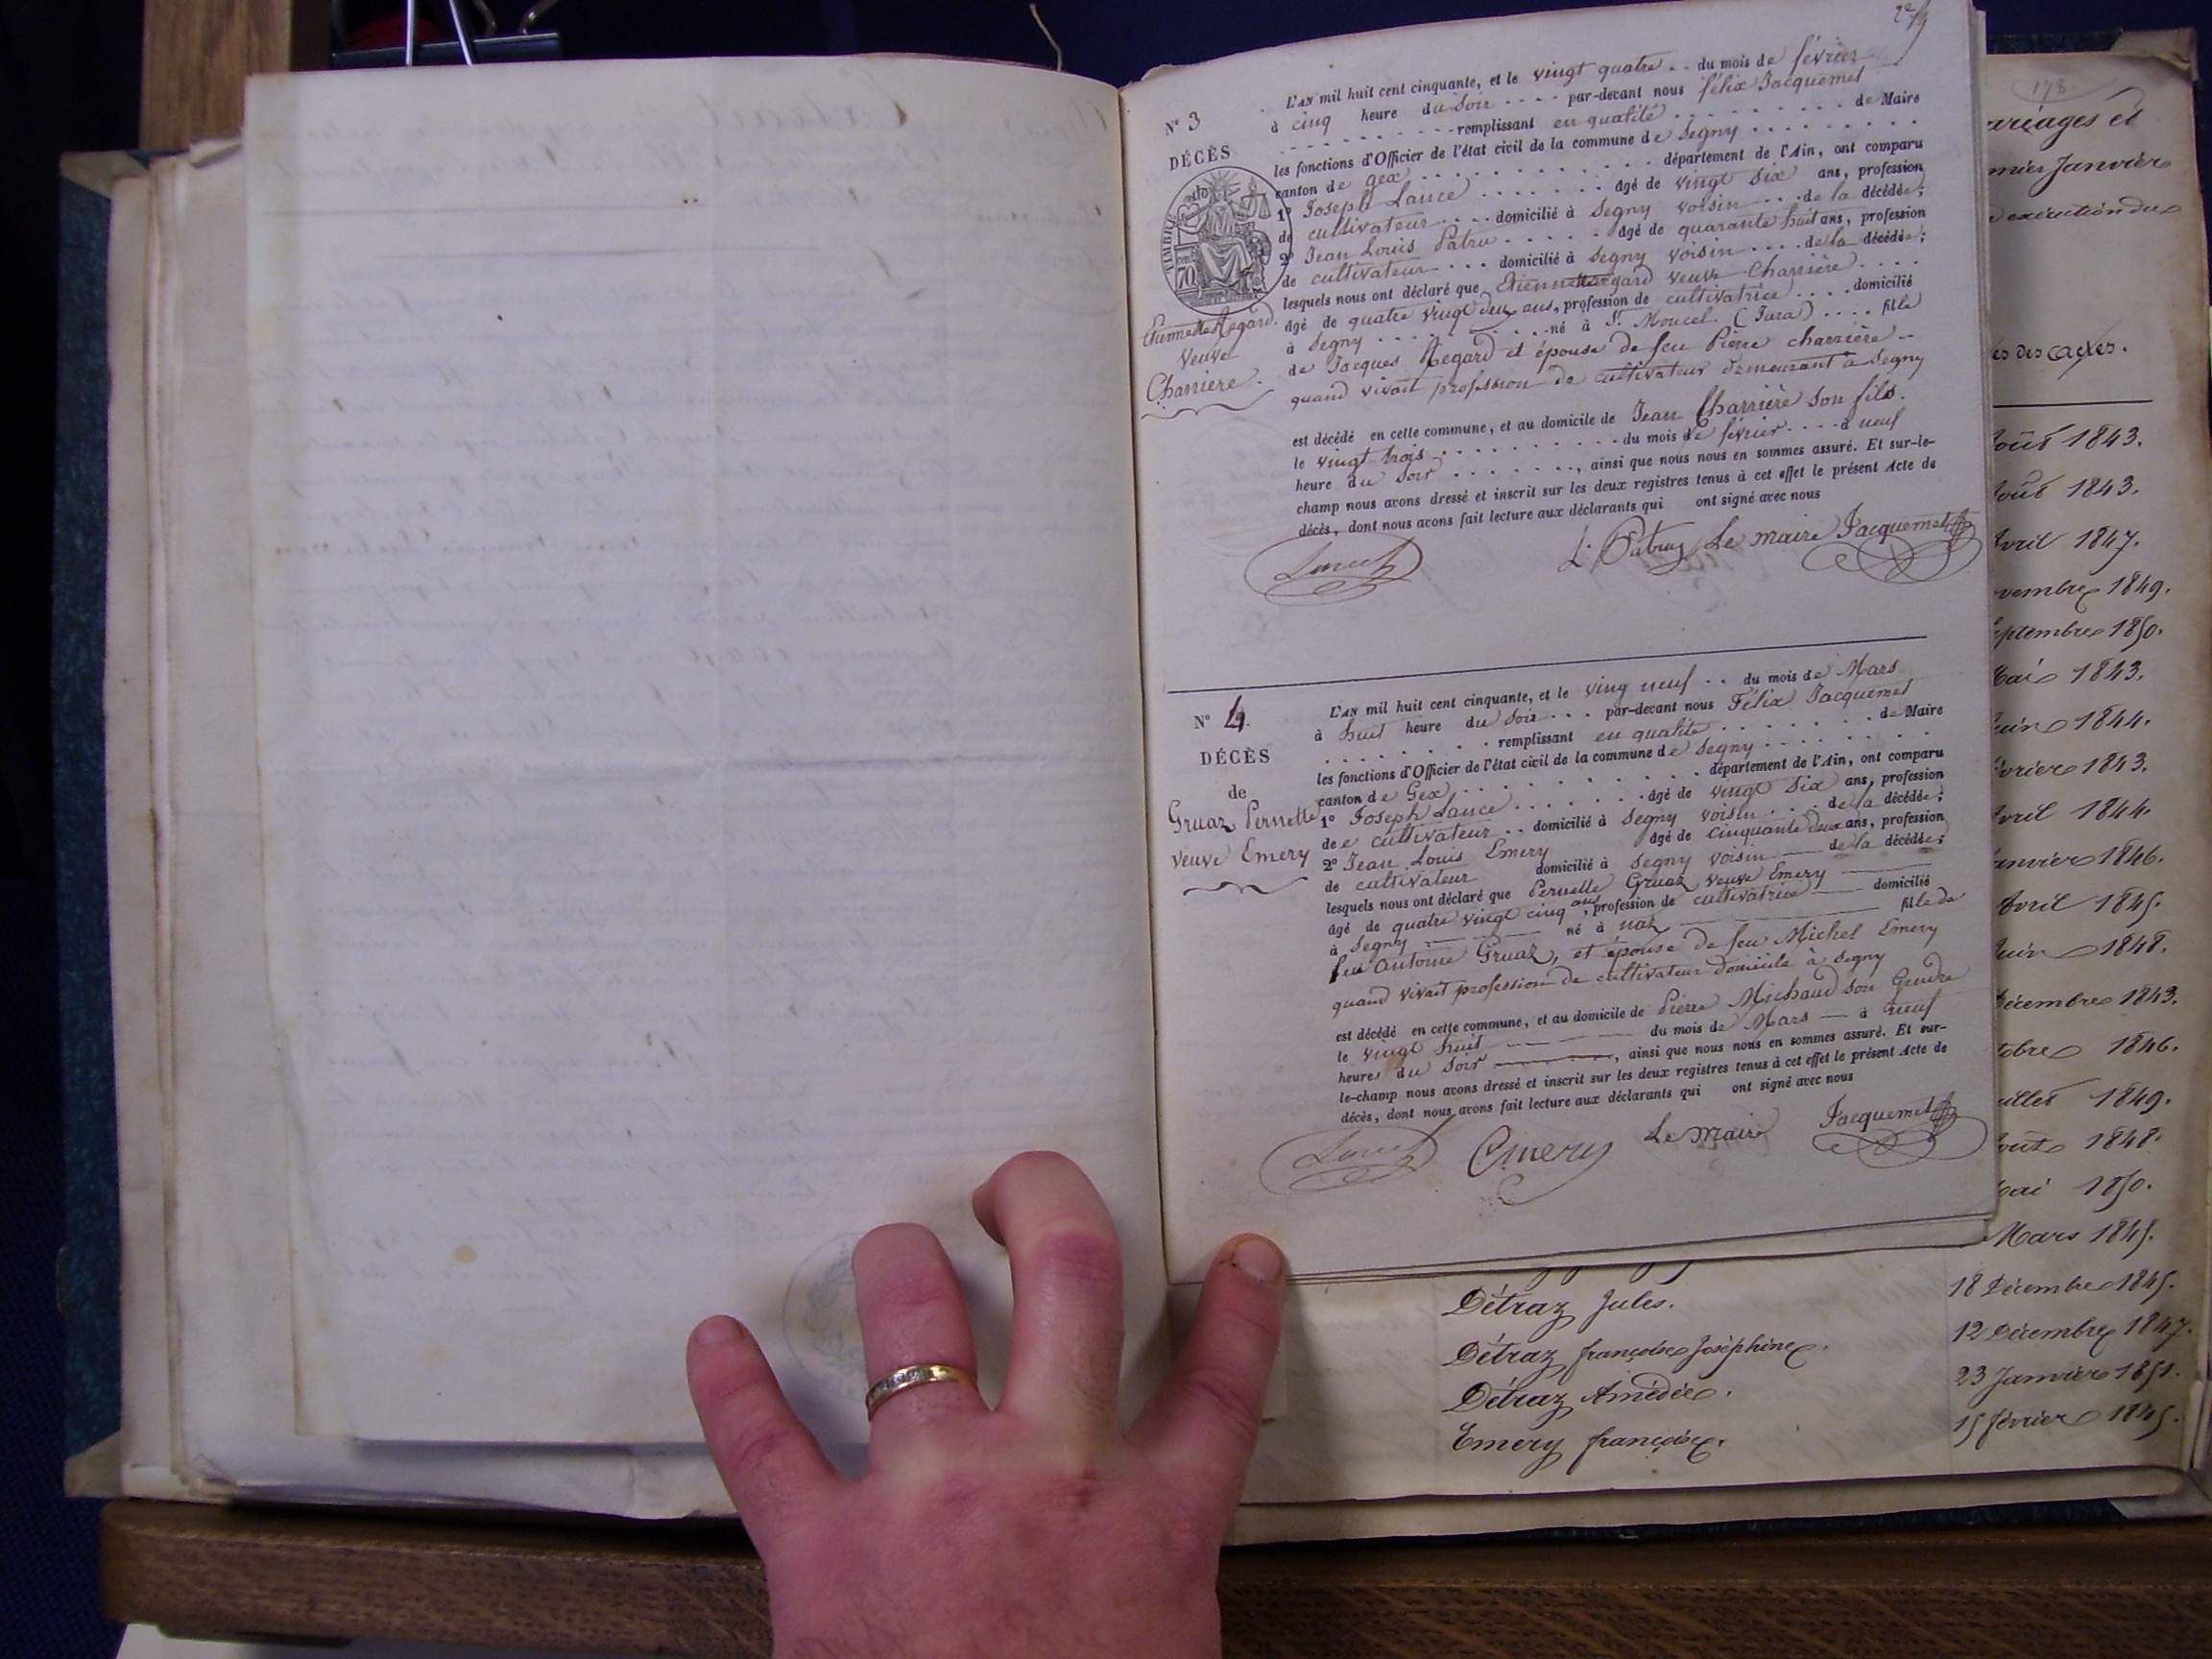 N° 3
DÉCÈS
TIMBRE
70
Etiennette Regard
Veuve
Charriere
L'AN mil huit cent cinquante, et le vingt quatre . . du mois de février
à cinq heure du Soir . . . . par-devant nous félix Jacquemet
. . . . . . . remplissant en qualité . . . . . . . . . de Maire
les fonctions d'Officier de l'état civil de la commune de Segny . . . . . . . . .
canton de gex . . . . . . . . . . département de l'Ain, ont comparu
1° Joseph Lance . . . . . . . âgé de vingt Six ans, profession
de cultivateur . . . . domicilié à Segny voisin . . . de la décédée;
2° Jean Louis Patru . . . . . âgé de quarante huit ans, profession
de cultivateur . . . domicilié à Segny voisin . . . . de la décédée;
lesquels nous ont déclaré que Etiennette Regard veuve Charrière . . . .
âgé de quatre vingt deux ans, profession de cultivatrice . . . . domicilié
à Segny . . . . . . . . . . né à St. Moucel. (Jura) . . . . fille
de Jacques Regard et épouse de feu Pierre charrière
quand vivait profession de cultivateur demeurant à Segny
est décédé en cette commune, et au domicile de Jean Charrière son fils.
le vingt trois . . . . . . . . . . du mois de février . . . . à neuf
heure du Soir . . . . . . . , ainsi que nous nous en sommes assuré. Et sur-le-
champ nous avons dressé et inscrit sur les deux registres tenus à cet effet le présent Acte de
décès, dont nous avons fait lecture aux déclarants qui ont signé avec nous
L. Patru Le maire Jacquemet
N° 4.
DÉCÈS
de
Gruaz Pernette
veuve Emery
L'AN mil huit cent cinquante, et le ving neuf . . du mois de Mars
à huit heure du Soir . . . par-devant nous Félix Jacquemet
. . . . . . . remplissant en qualité . . . . . . . . de Maire
les fonctions d'Officier de l'état civil de la commune de Segny . . . . . . . .
canton de Gex . . . . . . . . . . département de l'Ain, ont comparu
1° Joseph Lance . . . . . . . âgé de vingt Six ans, profession
de cultivateur . . domicilié à Segny voisin . . . de la décédée;
2° Jean Louis Emery âgé de cinquante deux ans, profession
de cultivateur domicilié à Segny voisin de la décédée;
lesquels nous ont déclaré que Pernette Gruaz veuve Emery
âgé de quatre vingt cinq ans, profession de cultivatrice domicilié
à Segny né à naz fille de
feu antoine Gruaz, et épouse de feu Michel Emery
quand vivait profession de cultivateur domicile à Segny
est décédé en cette commune, et au domicile de Pierre Michaud son Gendre
le vingt huit du mois de Mars — à neuf
heures du Soir , ainsi que nous nous en sommes assuré. Et sur-
le-champ nous avons dressé et inscrit sur les deux registres tenus à cet effet le présent Acte de
décès, dont nous avons fait lecture aux déclarants qui ont signé avec nous
Emery Le maire Jacquemet
178.
Janvier
des actes.
1843.
1843.
1847.
1849.
1850.
1843.
1844.
1843.
1844.
1846.
1845.
1848.
1843.
1846.
1849.
1848.
1850.
Mars 1845.
Détraz Jules. 18 Décembre 1845.
Détraz françoise Joséphine. 12 Décembre 1847.
Détraz Amédée. 23 Janvier 1851.
Emery françoise. 15 février 1845.